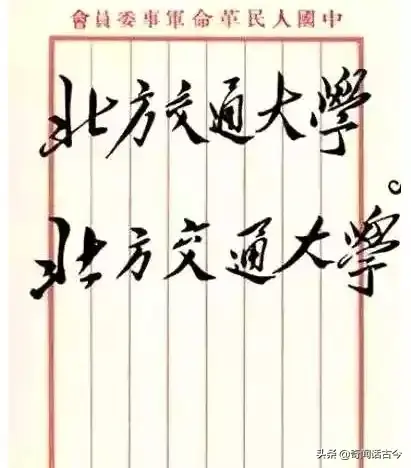 中國人民革命軍事委員會
北方交通大學
北方交通大學。
头条 @奇闻话古今